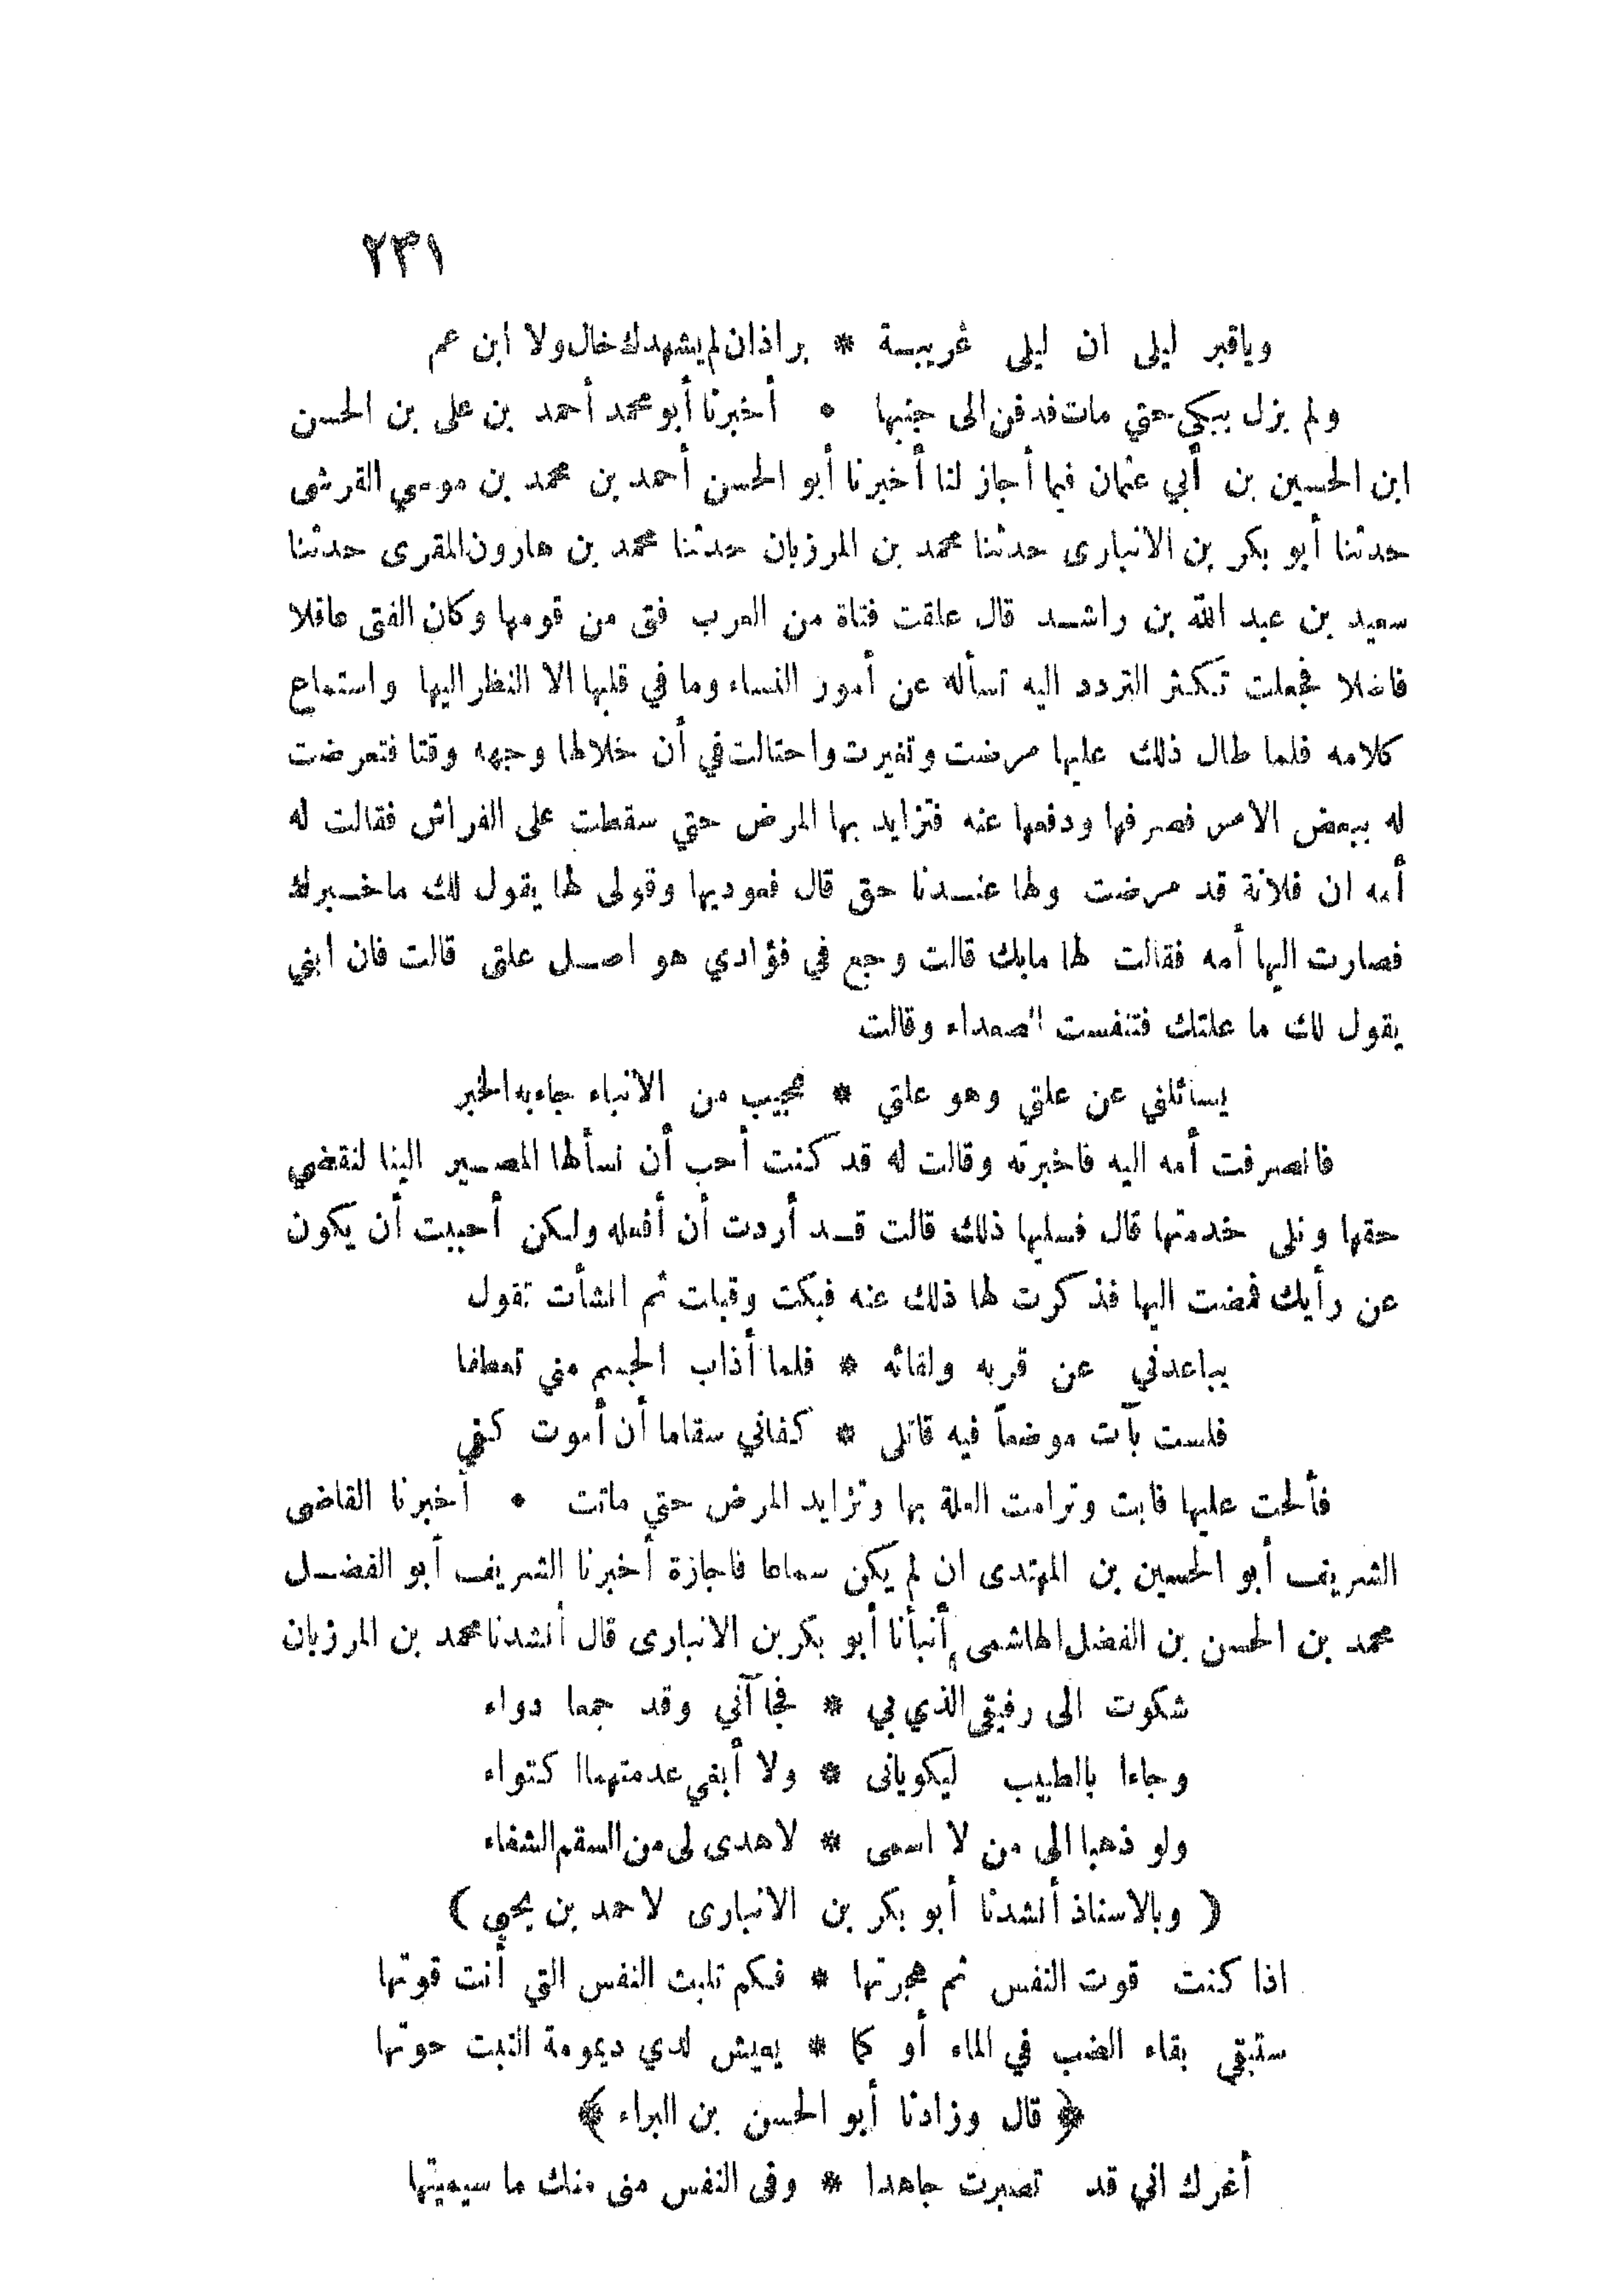 ٢٣١
وياقبر ليلى ان ليلى غريبة * براذان لم يشهدك خال ولا ابن عم
ولم يزل يبكي حتي مات فدفن الى جنبها • أخبرنا أبو محمد أحمد بن على بن الحسن
ابن الحسين بن أبي عثمان فيما أجاز لنا أخبرنا أبو الحسن أحمد بن محمد بن موسي القرشى
حدثنا أبو بكر بن الانبارى حدثنا محمد بن المرزبان حدثنا محمد بن هارون المقرى حدثنا
سعيد بن عبد الله بن راشد قال علقت فتاة من العرب فتى من قومها وكان الفتى عاقلا
فاضلا فجعلت تكثر التردد اليه تسأله عن أمور النساء وما في قلبها الا النظر اليها واستماع
كلامه فلما طال ذلك عليها مرضت وتغيرت واحتالت في أن خلالها وجهه وقتا فتعرضت
له ببعض الامر فصرفها ودفعها عنه فتزايد بها المرض حتي سقطت على الفراش فقالت له
أمه ان فلانة قد مرضت ولها عندنا حق قال فعوديها وقولى لها يقول لك ماخبرك
فصارت اليها أمه فقالت لها مابك قالت وجع في فؤادي هو اصل علتى قالت فان ابني
يقول لك ما علتك فتنفست الصعداء وقالت
يسائلني عن علتي وهو علتي * عجيب من الانباء جاء به الخبر
فانصرفت أمه اليه فاخبرته وقالت له قد كنت أحب أن نسألها المصير الينا لنقضي
حقها ونلى خدمتها قال فسليها ذلك قالت قد أردت أن أفعله ولكن أحببت أن يكون
عن رأيك فمضت اليها فذكرت لها ذلك عنه فبكت وقالت ثم انشأت تقول
يباعدني عن قربه ولقائه * فلما أذاب الجسم مني تعطفا
فلست بآت موضعاً فيه قاتلى * كفاني سقاما أن أموت كفي
فألحت عليها فابت وترامت العلة بها وتزايد المرض حتي ماتت • أخبرنا القاضى
الشريف أبو الحسين بن المهتدى ان لم يكن سماعا فاجازة أخبرنا الشريف أبو الفضل
محمد بن الحسن بن الفضل الهاشمى أنبأنا أبو بكر بن الانبارى قال أنشدنا محمد بن المرزبان
شكوت الى رفيقي الذي بي * فجاآني وقد جمعا دواء
وجاءا بالطبيب ليكويانى * ولا أبغي عدمتهما اكتواء
ولو ذهبا الى من لا اسمى * لاهدى لى من السقم الشفاء
( وبالاسناذ أنشدنا أبو بكر بن الانبارى لاحمد بن يحي )
اذا كنت قوت النفس ثم هجرتها * فكم تلبث النفس التي أنت قوتها
ستبقي بقاء الضب في الماء أو كما * يعيش لدي ديمومة النبت حوتها
﴿ قال وزادنا أبو الحسن بن البراء ﴾
أغرك اني قد تصبرت جاهدا * وفى النفس منى منك ما سيميتها